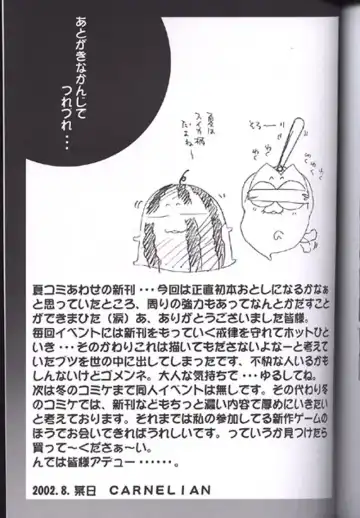 あとがきなかんじで
つれづれ・・・
夏は
スイカ柄
だよね〜
そろ〜
わく
わく
わく
夏コミあわせの新刊・・・今回は正直初本おとしになるかなぁ
と思っていたところ、周りの強力もあってなんとかだすこと
ができまひた(涙)あ、ありがとうございました皆様。
毎回イベントには新刊をもっていく戒律を守れてホットひと
いき・・・そのかわりこれは描いてもださないよなーと考えて
いたブツを世の中に出してしまったです、不納な人いるかも
しんないけどゴメンネ。大人な気持ちで・・・ゆるしてね。
次は冬のコミケまで同人イベントは無しです。その代わり冬
のコミケでは、新刊などもちっと濃い内容で厚めにいきたい
と考えております。それまでは私の参加してる新作ゲームの
ほうでお会いできればうれしいです。っていうか見つけたら
買って〜くださぁ〜い。
んでは皆様アデュー・・・・・・。
2002.8.某日 CARNELIAN